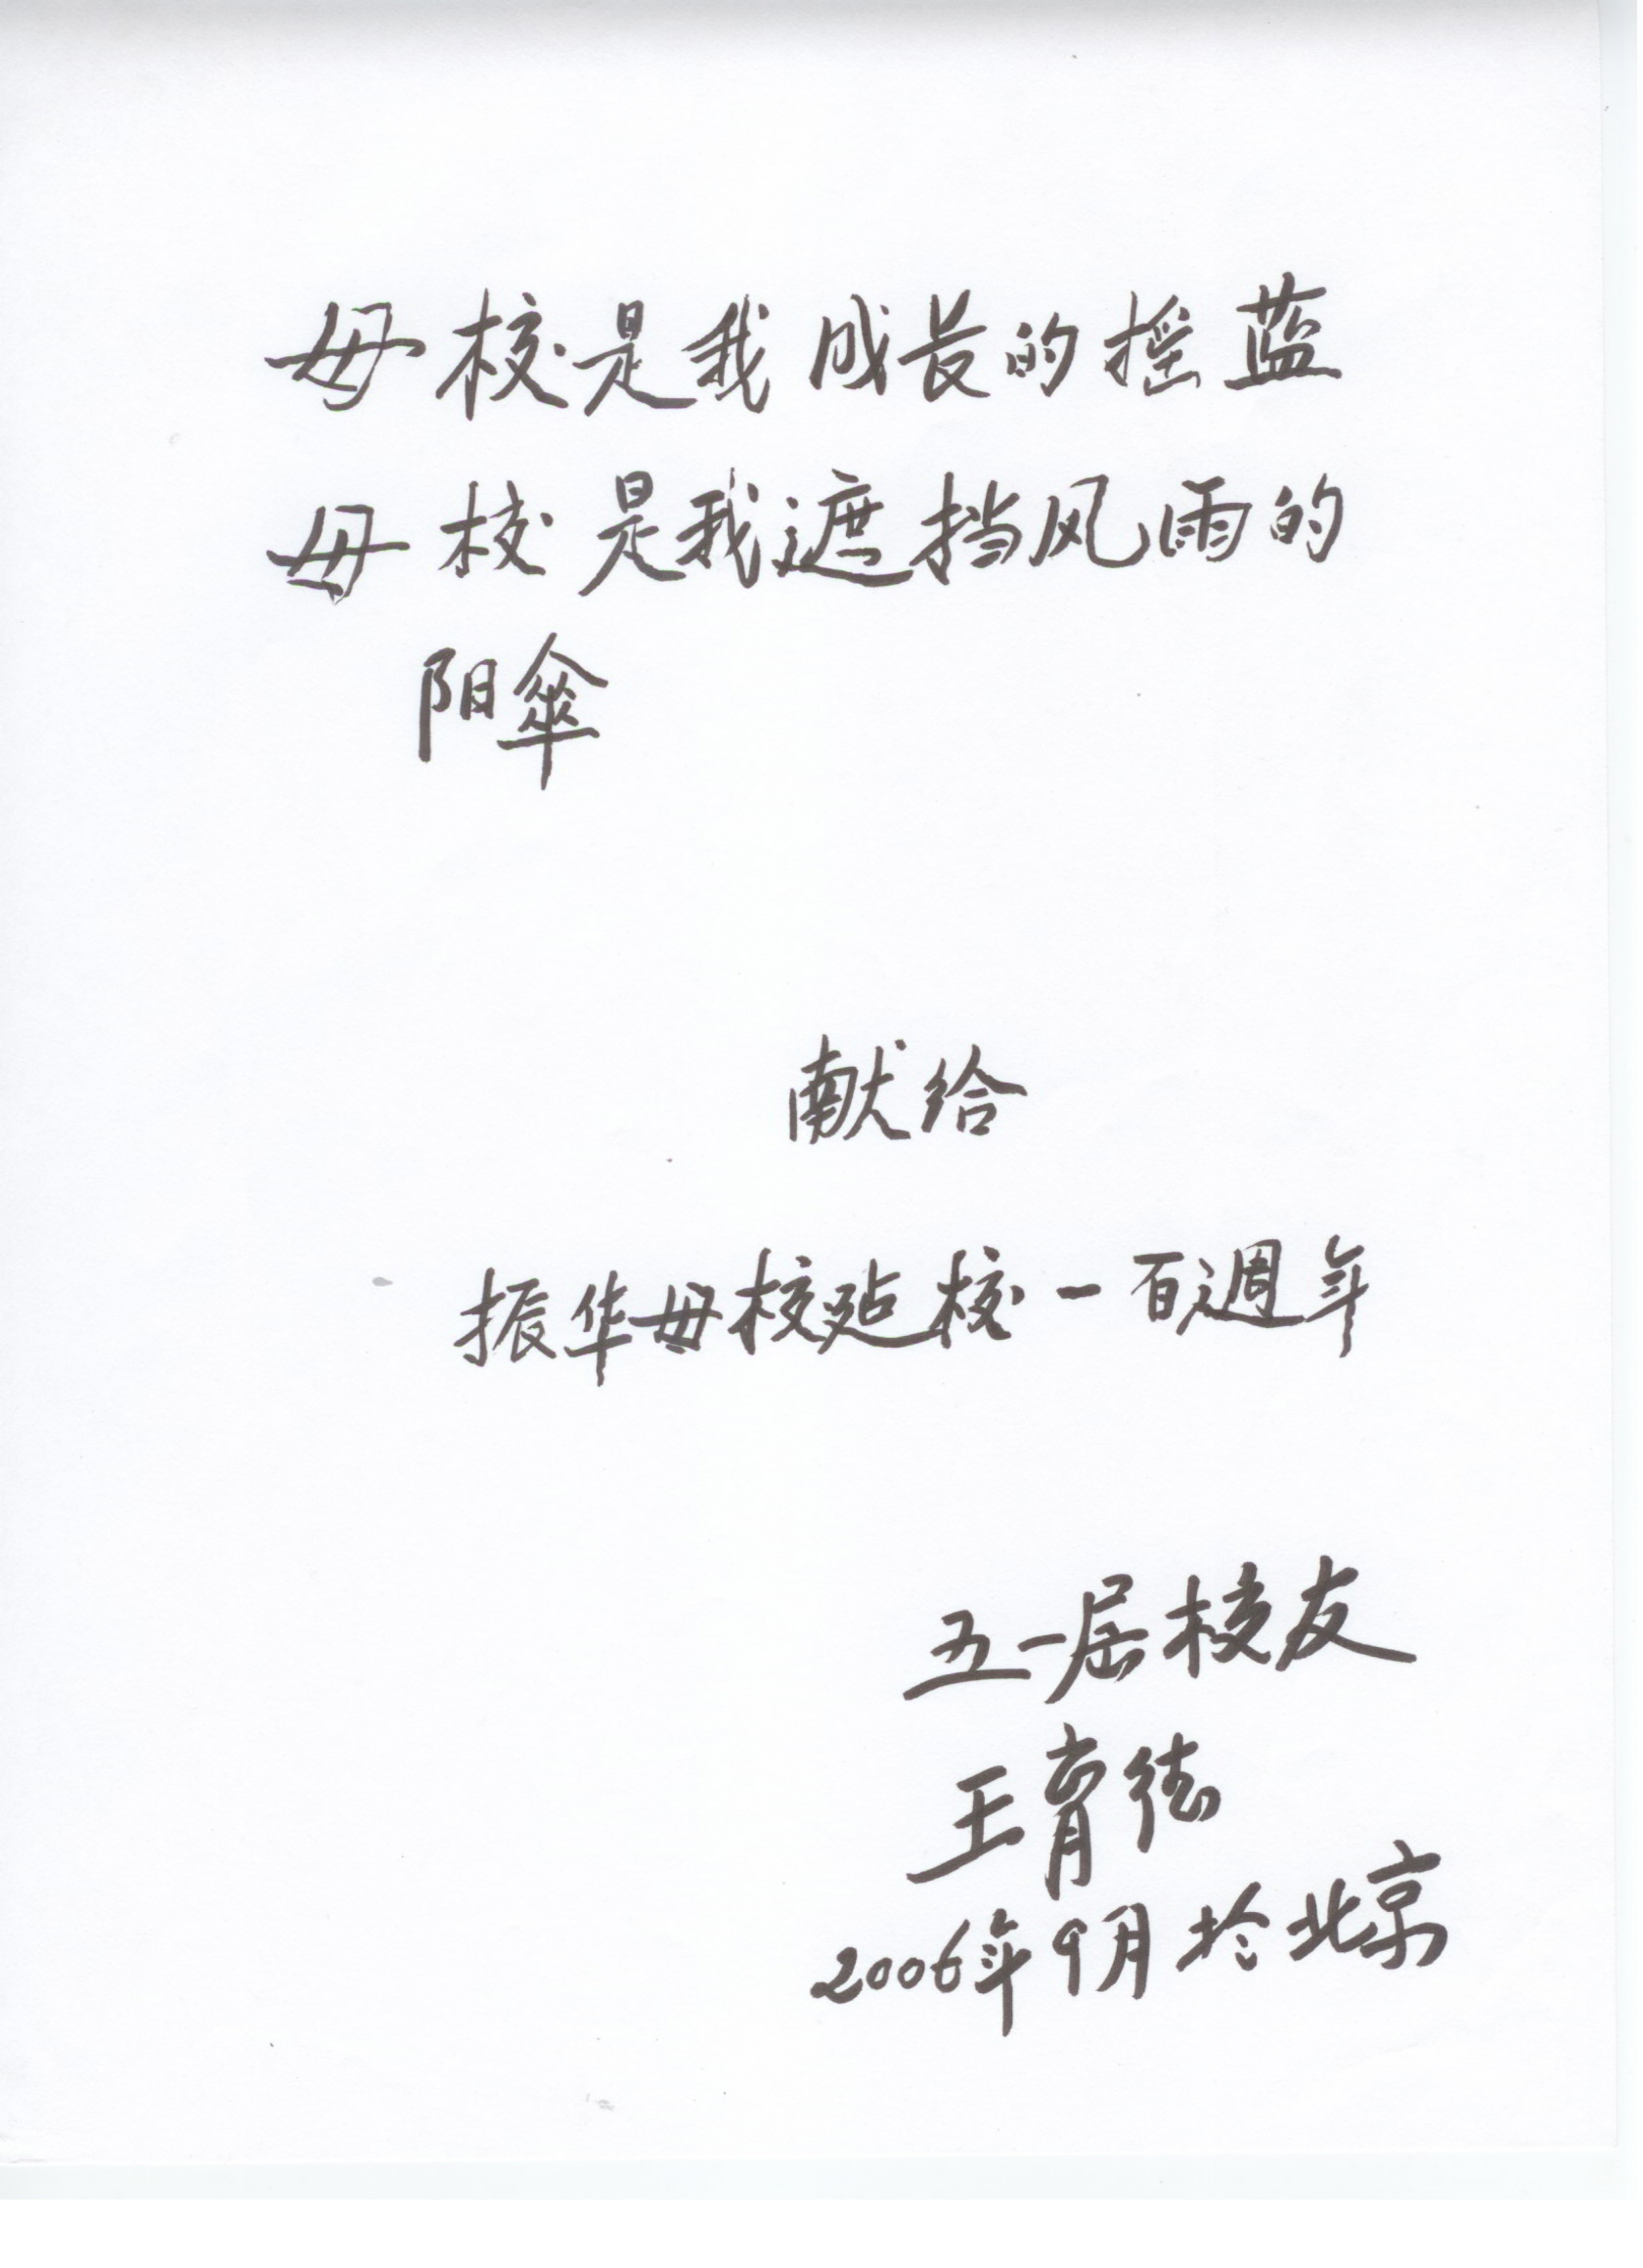 母校是我成长的摇蓝
母校是我遮挡风雨的
阳傘
献给
振华母校建校一百週年
五一届校友
王育德
2006年9月於北京